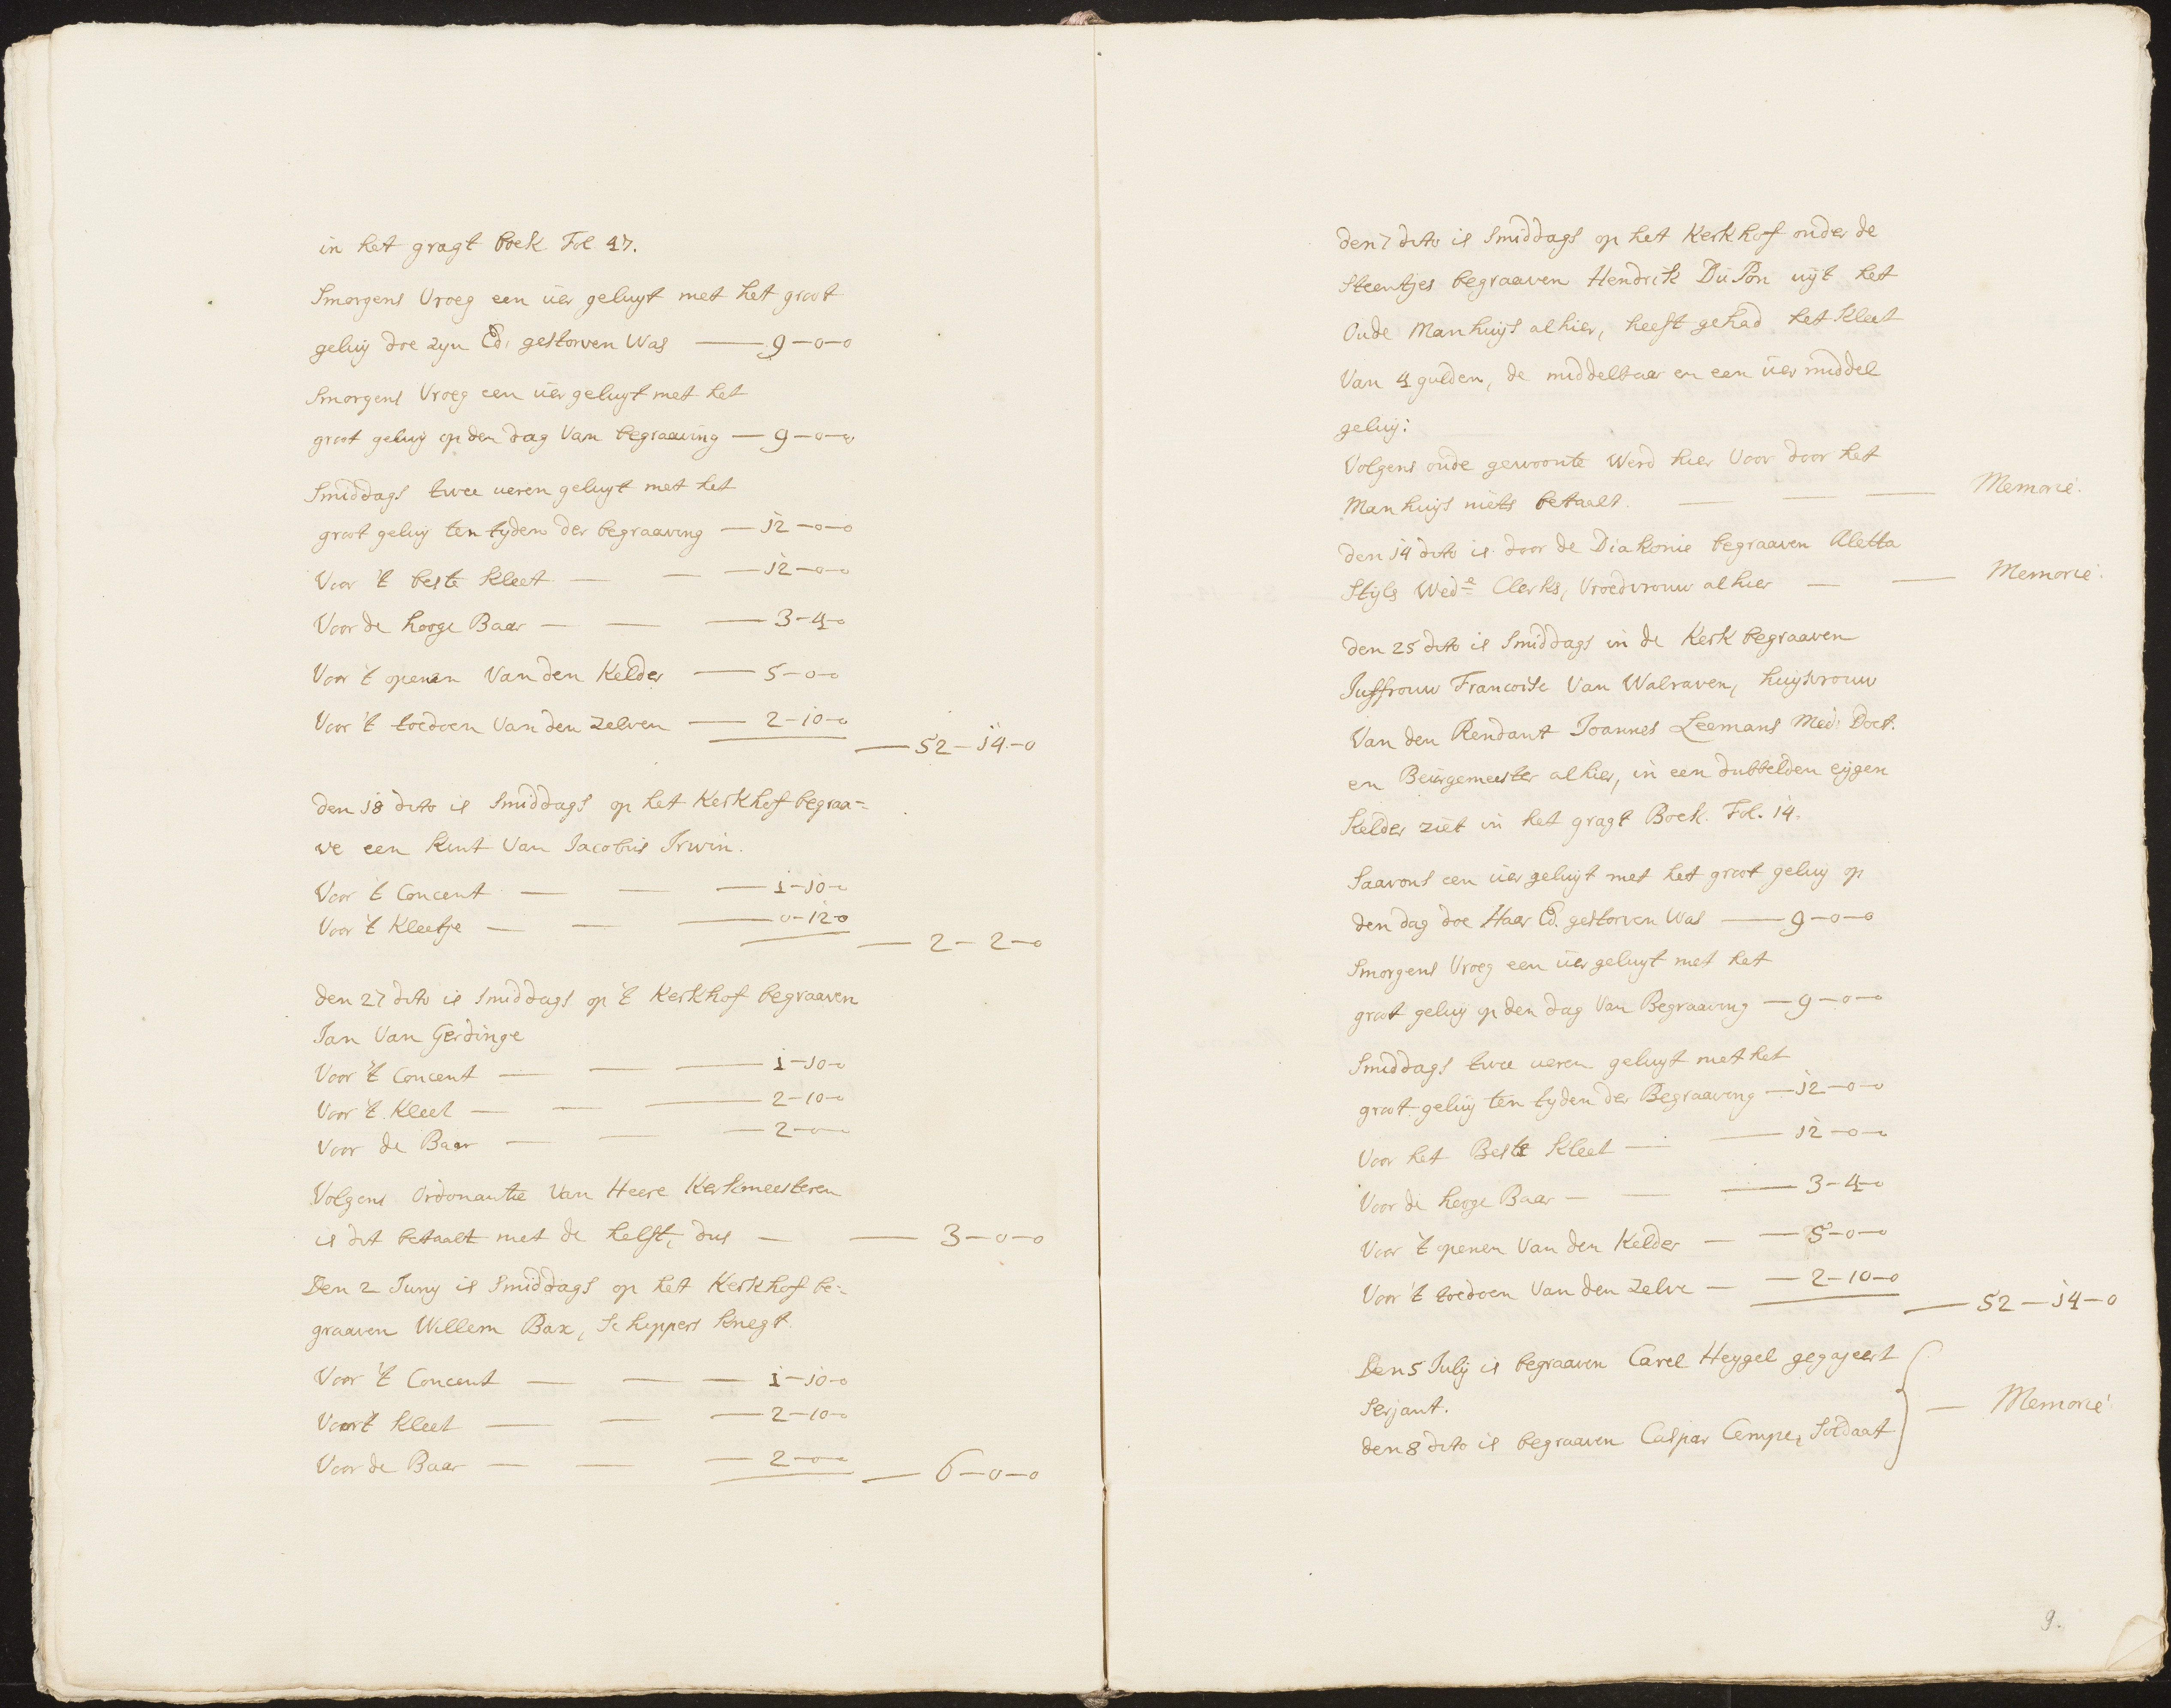 in het gragt boek Fol 47.
Smorgens Vroeg een uer geluyt met het groot
geluy doe zyn Ed: gestorven Was — 9-0-0
Smorgens Vroeg een uer geluyt met het
groot geluy op den dag Van begraaving — 9-0-0
Smiddags twee ueren geluyt met het
groot geluy ten tyden der begraaving — 12-0-0
Voor 't beste kleet — — — 12-0-0
Voor de hooge Baar — — — 3-4-0
Voor 't openen Van den Kelder — 5-0-0
Voor 't toedoen Van den zelven — 2-10-0
— 52-14-0
den 18 dito is Smiddags op het Kerkhof begraa=
ve een kint Van Jacobus Irwin.
Voor 't Concent — — — 1-10-0
Voor 't Kleetje — — — 0-12-0
— 2-2-0
den 27 dito is Smiddags op 't Kerkhof begraaven
Jan Van Gerdinge
Voor 't Concent — — — 1-10-0
Voor 't Kleet — — — 2-10-0
Voor de Baar — — — 2-0-0
Volgens Ordonantie Van Heere Kerkmeesteren
is dit betaalt met de helft, dus — — 3-0-0
Den 2 Juny is Smiddags op het Kerkhof be=
graaven Willem Bax, Schippers knegt.
Voor 't Concent — — — 1-10-0
Voor 't Kleet — — — 2-10-0
Voor de Baar — — — 2-0-0
— 6-0-0
den 7 dito is Smiddags op het Kerkhof onder de
Steentjes begraaven Hendrik Du Pon uijt het
Oude Manhuijs alhier, heeft gehad het kleet
Van 4 gulden, de middelbaar en een uer middel
geluij:
Volgens oude gewoonte Werd hier Voor door het
Manhuijs niets betaalt. — — — Memorie.
den 14 dito is door de Diakonie begraaven Aletta
Stijls Wed.e Clerks, Vroedvrouw alhier — — Memorie.
den 25 dito is Smiddags in de Kerk begraaven
Juffrouw Francoise Van Walraven, huysvrouw
Van den Rendant Joannes Leemans Med: Doct.
en Beurgemeester alhier, in een dubbelden eijgen
Kelder ziet in het gragt Boek. Fol. 14.
Saavons een uer geluyt met het groot geluy op
den dag doe Haar Ed. gestorven Was — 9-0-0
Smorgens Vroeg een uer geluyt met het
groot geluy op den dag Van Begraaving — 9-0-0
Smiddags twee ueren geluyt met het
groot geluy ten tyden der Begraaving — 12-0-0
Voor het Beste Kleet — — 12-0-0
Voor de hooge Baar — — — 3-4-0
Voor 't openen Van den Kelder — — 5-0-0
Voor 't toedoen Van den Zelve — — 2-10-0
— 52-14-0
Den 5 July is begraaven Carel Heygel gegajeert
Serjant.
— Memorie.
den 8 dito is begraaven Caspar Cempe, Soldaat
9.